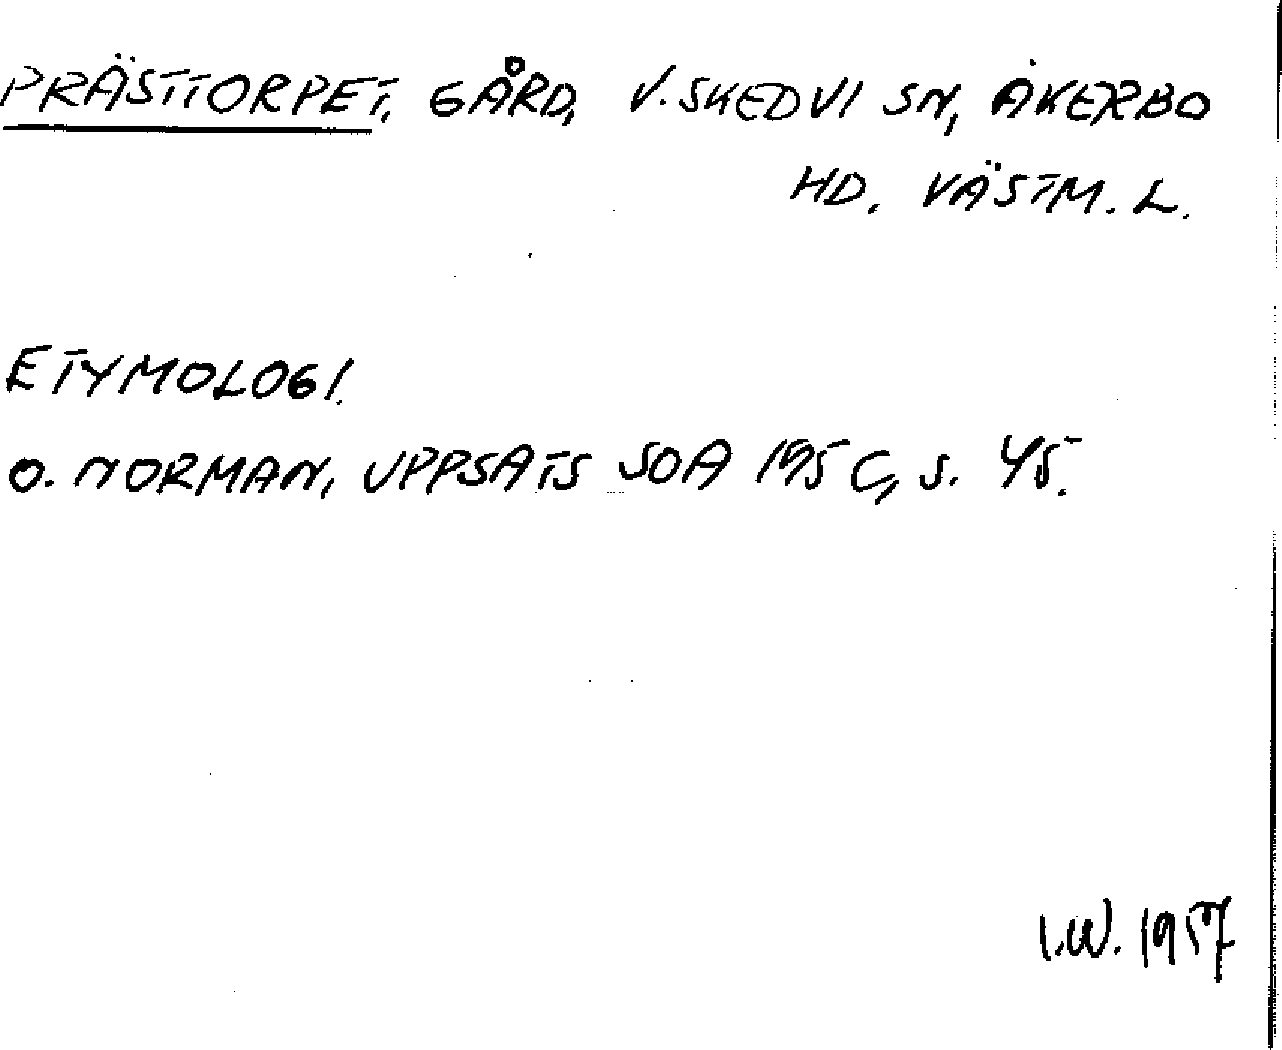 PRÄSTTORPET, GÅRD, V. SKEDVI SN, ÅKERBO
HD. VÄSTM. L.
ETYMOLOGI.
O. NORMAN, UPPSATS SOA 195 C, S. 45.
I.W. 1957